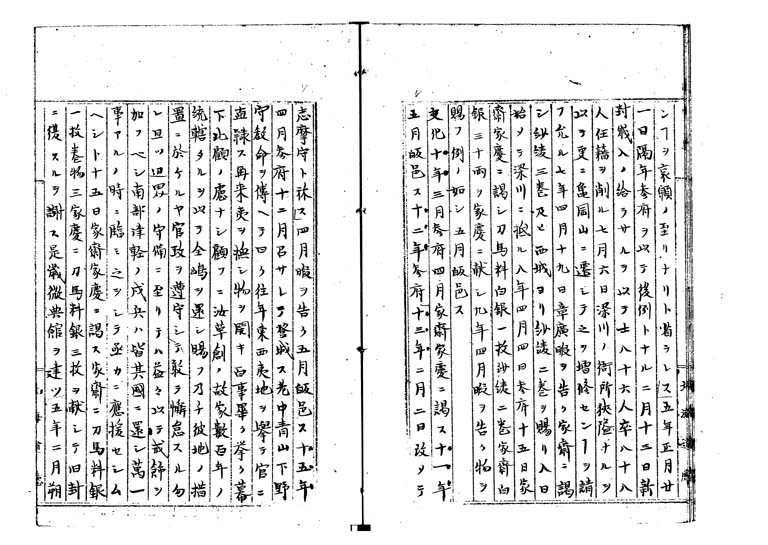 ンヿヲ哀願ノ至リナリト省ラレス五年正月廿
一日隔年参府ヲ以テ後例トナル二月十三日新
封歳入ノ給ラサルヲ以テ士八十六人卒八十八
人任籍ヲ削ル七月六日深川ノ衙所狹隘ナルヲ
以テ更ニ亀岡山ニ遷シテ之ヲ増修センヿヲ請
フ允ル七年四月十九日章廣暇ヲ告ク家齋ニ謁
シ紗綾三巻及ヒ西城ヨリ紗綾二巻ヲ賜リ入日
始メテ深川ニ抵ル八年四月四日参府十五日家
齋家慶ニ謁シ刀馬料白銀一枚紗綾二巻家齋白
銀三十両ヲ家慶ニ献シ九年四月暇ヲ告ク物ヲ
賜フ例ノ如シ五月皈邑ス
文化十年三月参府四月家齋家慶ニ謁ス十一年
五月皈邑ス十二年参府十三年二月二日改メテ
志摩守ト称ス四月暇ヲ告ク五月皈邑ス十五年
四月参府十二月召サレテ登城ス老中青山下野
守教命ヲ傳ヘテ曰ク往年東西夷地ヲ擧テ官ニ
直隷ス再来夷ヲ撫シ物ヲ開キ百事畢ク挙ク幕
下北顧ノ慮ナシ顧フニ汝草創ノ故家數百年ノ
統轄タルヲ以テ全嶋ヲ還シ賜フ乃チ彼地ノ措
置ニ於ケルヤ官政ヲ遵守シテ敢テ懈怠スル勿
レ且ツ辺界ノ守備ニ至リテハ益々以テ戒飾ヲ
加フヘシ南部津軽ノ戍兵ハ皆其國ニ還シ萬一
事アルノ時ニ臨ミ之ヲシテ亟カニ應援セシム
ヘシト十五日家齋家慶ニ謁ス家齋ニ刀馬料銀
一枚巻物三家慶ニ刀馬料銀三枚ヲ献シテ旧封
ニ復スルヲ謝ス是歳徴典館ヲ建ツ五年二月朔